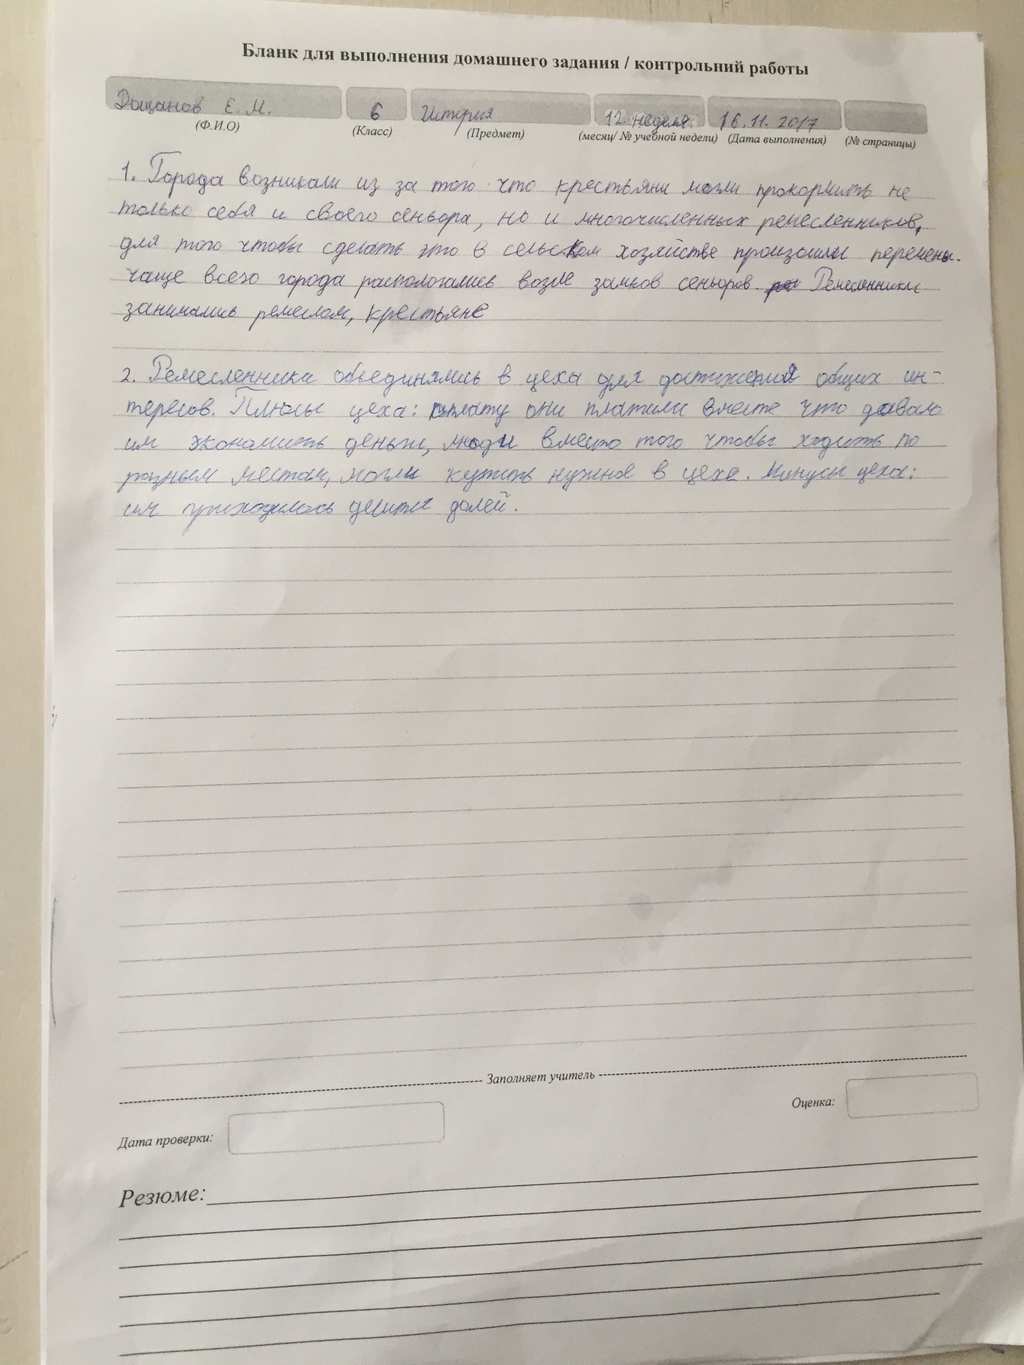 Бланк для выполнения домашнего задания / контрольний работы
Дощанов Е. М. 6 История 12 неделя 16.11.2017
(Ф.И.О) (Класс) (Предмет) (месяц/ № учебной недели) (Дата выполнения) (№ страницы)
1. Города возникали из за того что крестьяни могли прокормить не
только себя и своего сеньора, но и многочисленных ремесленников,
для того чтобы сделать это в сельском хозяйстве произошли перемены.
чаще всего города распологались возле замков сеньоров. Ремесленники
занимались ремеслом, крестьяне
2. Ремесленники объединялись в цеха для достижения общих ин-
тересов. Плюсы цеха: плату они платили вместе что давало
им экономить деньги, люди вместо того чтобы ходить по
разным местам, могли купить нужное в цехе. Минусы цеха:
им приходилось делить долей.
Заполняет учитель
Дата проверки: Оценка:
Резюме: